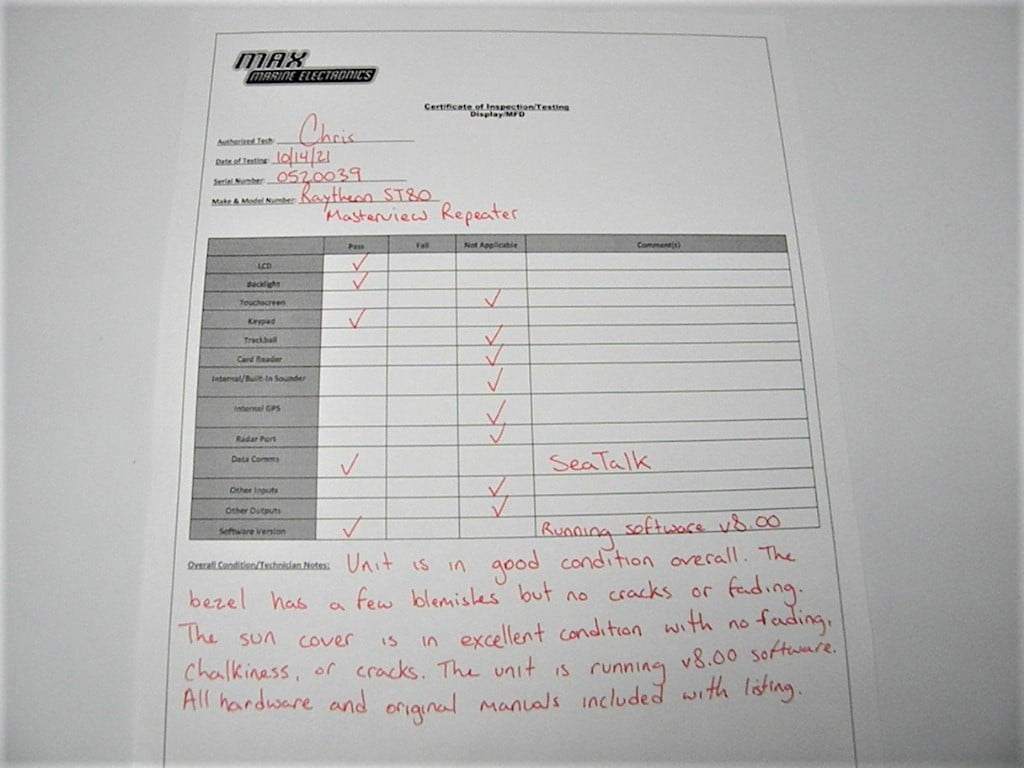 MAX
MARINE ELECTRONICS
Certificate of Inspection/Testing
Display/MFD
Authorized Tech: Chris
Date of Testing: 10/14/21
Serial Number: 0520039
Make & Model Number: Raytheon ST80
Masterview Repeater
Pass Fail Not Applicable Comment(s)
LCD ✓
Backlight ✓
Touchscreen ✓
Keypad ✓
Trackball ✓
Card Reader ✓
Internal/Built-In Sounder ✓
Internal GPS ✓
Radar Port ✓
Data Comms ✓ SeaTalk
Other Inputs ✓
Other Outputs ✓
Software Version ✓ Running software v8.00
Overall Condition/Technician Notes: Unit is in good condition overall. The
bezel has a few blemishes but no cracks or fading.
The sun cover is in excellent condition with no fading,
Chalkiness, or cracks. The unit is running v8.00 software.
All hardware and original manuals included with listing.